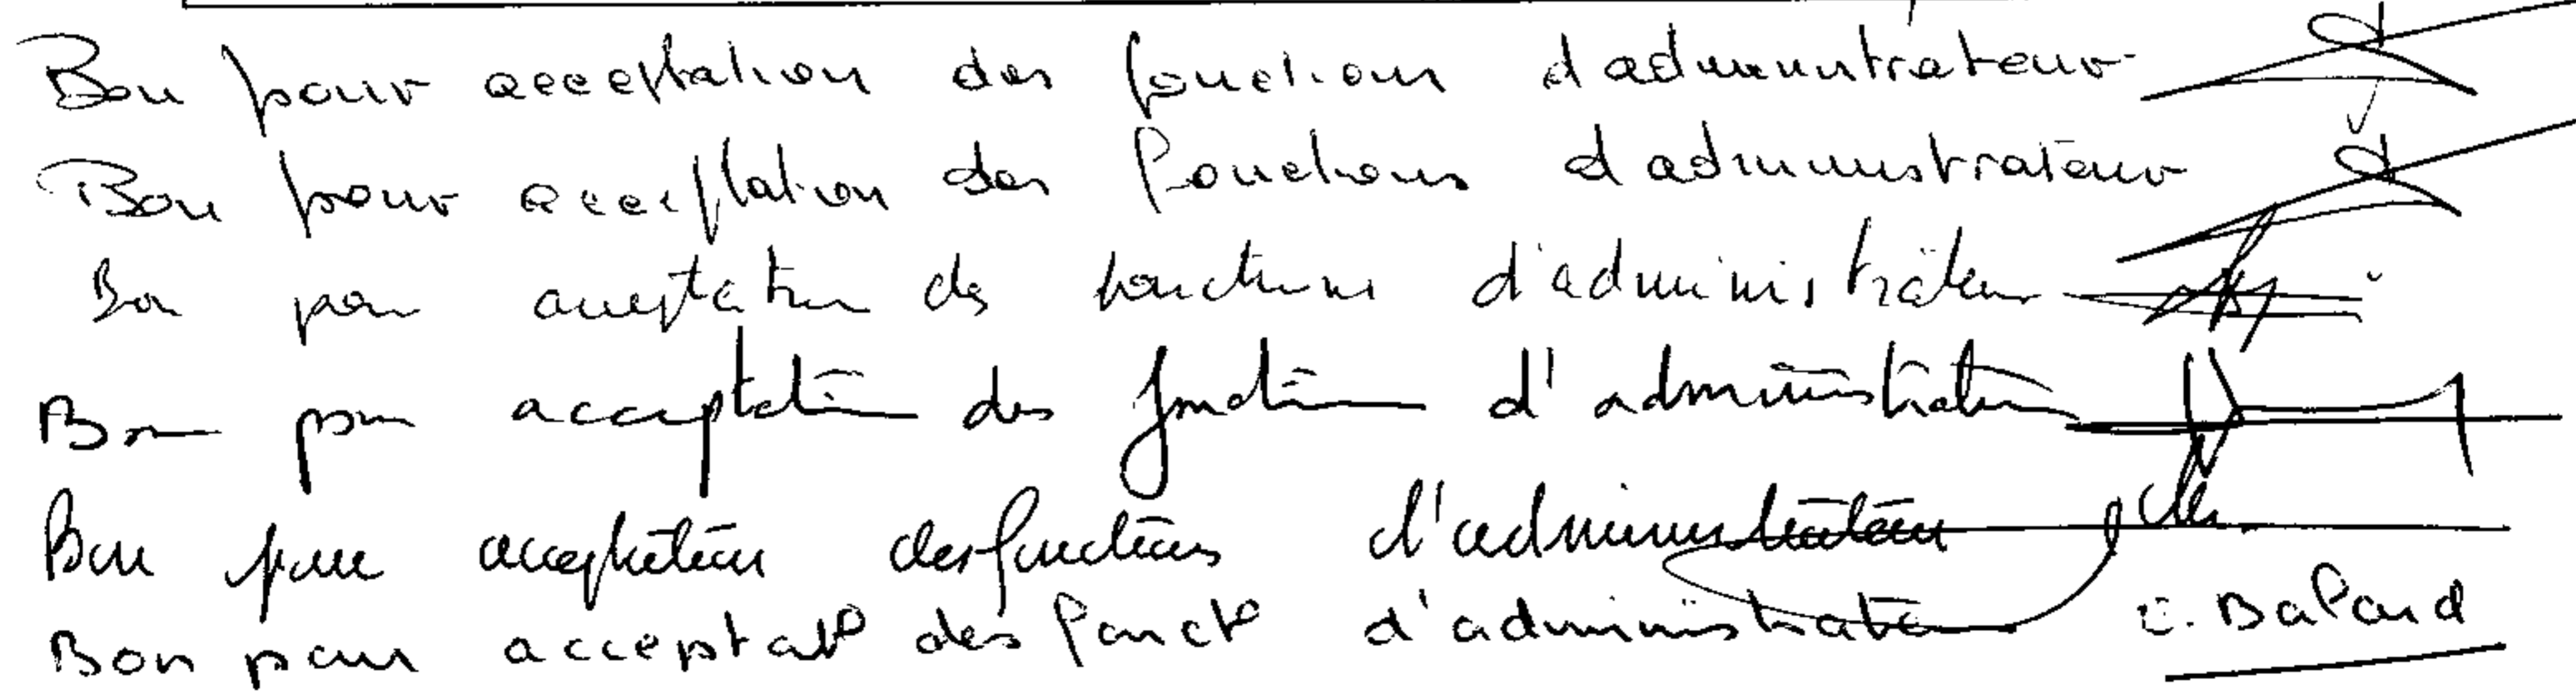 Bon pour acceptation des fonctions d administrateur
Bon pour acceptation des fonctions d administrateur
Bon pour acceptation des fonctions d'administrateur
Bon pour acceptation des fonctions d'administrateur
Bon pour acceptation des fonctions d'administrateur
Bon pour acceptat° des fonct° d'administrateur